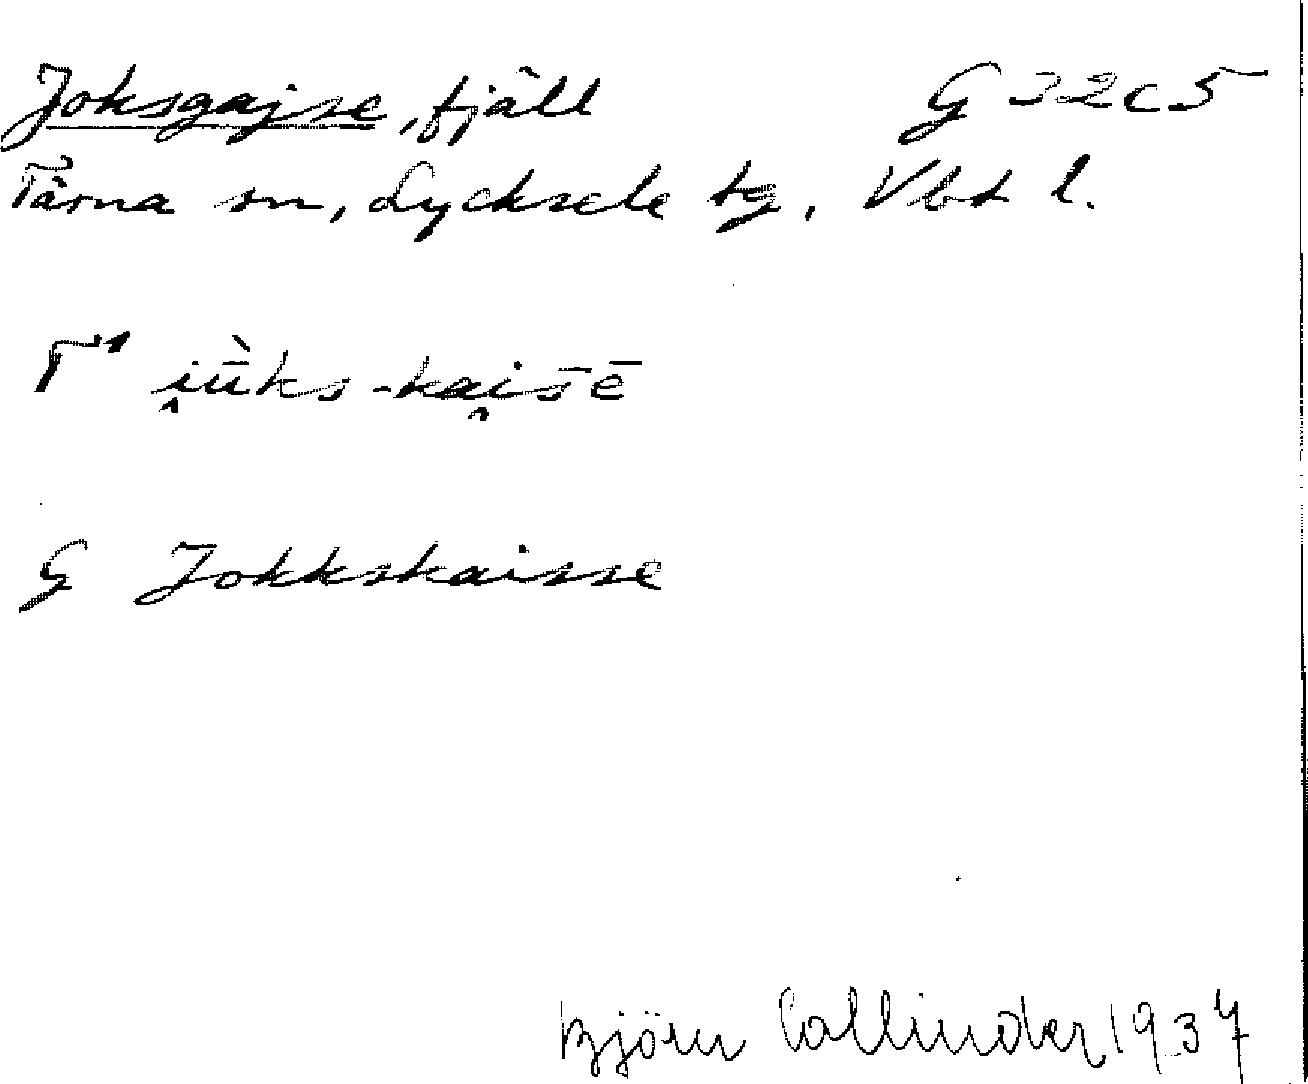 Joksgajse, fjäll G 32c5
Tärna sn, Lycksele tg. Vbt l.
T¹ i̯ū̀ks-kai̯s̄ē
G Jokkskaisse
Björn Collinder 1937